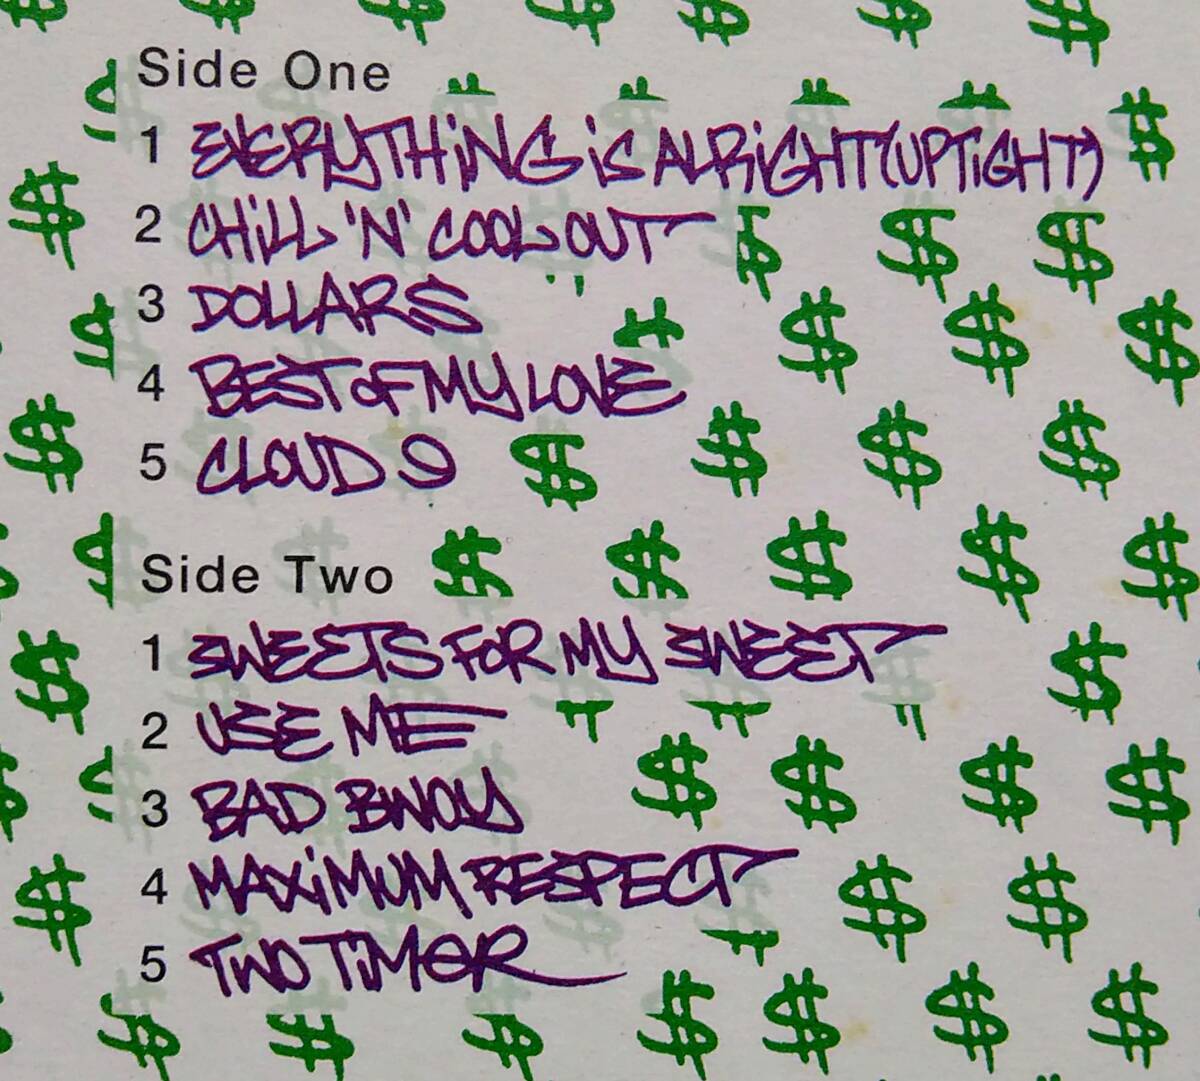 Side One
1 EVERYTHiNG iS ALRiGHT (UPTiGHT)
2 CHiLL 'N' COOL OUT
3 DOLLARS
4 BEST OF MY LOVE
5 CLOUD 9
Side Two
1 SWEETS FOR MY SWEET
2 USE ME
3 BAD BWOY
4 MAXiMUM RESPECT
5 TWO TiMER